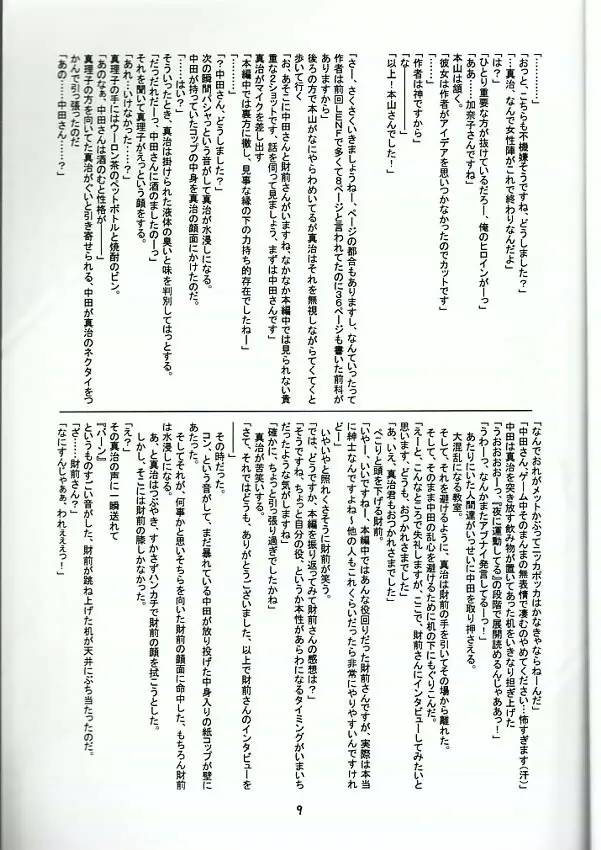 「………」
「おっと、こちらも不機嫌そうですね、どうしました？」
「…真治、なんで女性陣がこれで終わりなんだよ」
「は？」
「ひとり重要な方が抜けているだろー、俺のヒロインがーっ」
「ああ……加奈子さんですね」
本山は頷く。
「彼女は作者がアイデアを思いつかなかったのでカットです」
「な――」
「作者は神ですから」
「以上！本山さんでした！」
「さー、さくさくいきましょうねー、ページの都合もありますし、なんていったって
作者は前回ＬＥＮＦで多くて８ページと言われてたのに３６ページも書いた前科が
ありますから」
後ろの方で本山がなにやらわめいてるが真治はそれを無視しながらてくてくと
歩いて行く
「お、あそこに中田さんと財前さんがいますね、なかなか本編中では見られない貴
重な２ショットです、話を伺って見ましょう、まずは中田さんです」
真治がマイクを差し出す
「本編中では裏方に徹し、見事な縁の下の力持ち的存在でしたねー」
「………」
「？中田さん、どうしました？」
次の瞬間バシャっという音がして真治が水浸しになる。
中田が持っていたコップの中身を真治の顔面にかけたのだ。
「……はい？」
そういったとき、真治は掛けられた液体の臭いと味を判別してはっとする。
「だっだれだーっ、中田さんに酒のましたのーっ」
それを聞いて真理子がえっという顔をする。
「あれ…いけなかった……？」
真理子の手にはウーロン茶のペットボトルと焼酎のビン。
「あのなぁ、中田さんは酒のむと性格が――」
真理子の方を向いてた真治がぐいと引き寄せられる、中田が真治のネクタイをつ
かんで引っ張ったのだ
「あの……中田さん……？」
「なんでおれがメットかぶってニッカボッカはかなきゃならねーんだ」
「中田さん、ゲーム中そのまんまの無表情で凄むのやめてください…怖すぎます（汗）」
中田は真治を突き放す飲み物が置いてあった机をいきなり担ぎ上げた
「うおおおおーっ、『夜に運動してる』の段階で展開読めるんじゃああっ！」
「うわーっ、なんかまたアブナイ発言してるーっ！」
あたりにいた人間達がいっせいに中田を取り押さえる。
大混乱になる教室。
そして、それを避けるように、真治は財前の手を引いてその場から離れた。
そして、そのまま中田の乱心を避けるために机の下にもぐりこんだ。
「えーと、こんなところで失礼しますが、ここで、財前さんにインタビューしてみたいと
思います、どうも、おつかれさまでした」
「あ、いえ、真治君もおつかれさまでした」
ぺこりと頭を下げる財前。
「いやー、いいですねー、本編中ではあんな役回りだった財前さんですが、実際は本当
に紳士なんですよね～他の人もこれくらいだったら非常にやりやすいんですけれ
どー」
いやいやと照れくさそうに財前が笑う。
「では、どうですか、本編を振り返ってみて財前さんの感想は？」
「そうですね、ちょっと自分の役、というか本性があらわになるタイミングがいまいち
だったような気がしますね」
「確かに、ちょっと引っ張り過ぎでしたかね」
真治が苦笑いする。
「さて、それではどうも、ありがとうございました、以上で財前さんのインタビューを
――」
その時だった。
コン、という音がして、まだ暴れている中田が放り投げた中身入りの紙コップが壁に
あたった。
そしてそれが、何事かと思いそちらを向いた財前の顔面に命中した、もちろん財前
は水浸しになる。
あ、と真治はつぶやき、すかさずハンカチで財前の顔を拭こうとした。
しかし、そこには財前の膝しかなかった。
「え？」
その真治の声に一瞬送れて
『バーン』
というものすごい音がした、財前が跳ね上げた机が天井にぶち当たったのだ。
「ざ……財前さん？」
「なにすんじゃぁぁ、われぇぇぇっ！」
9